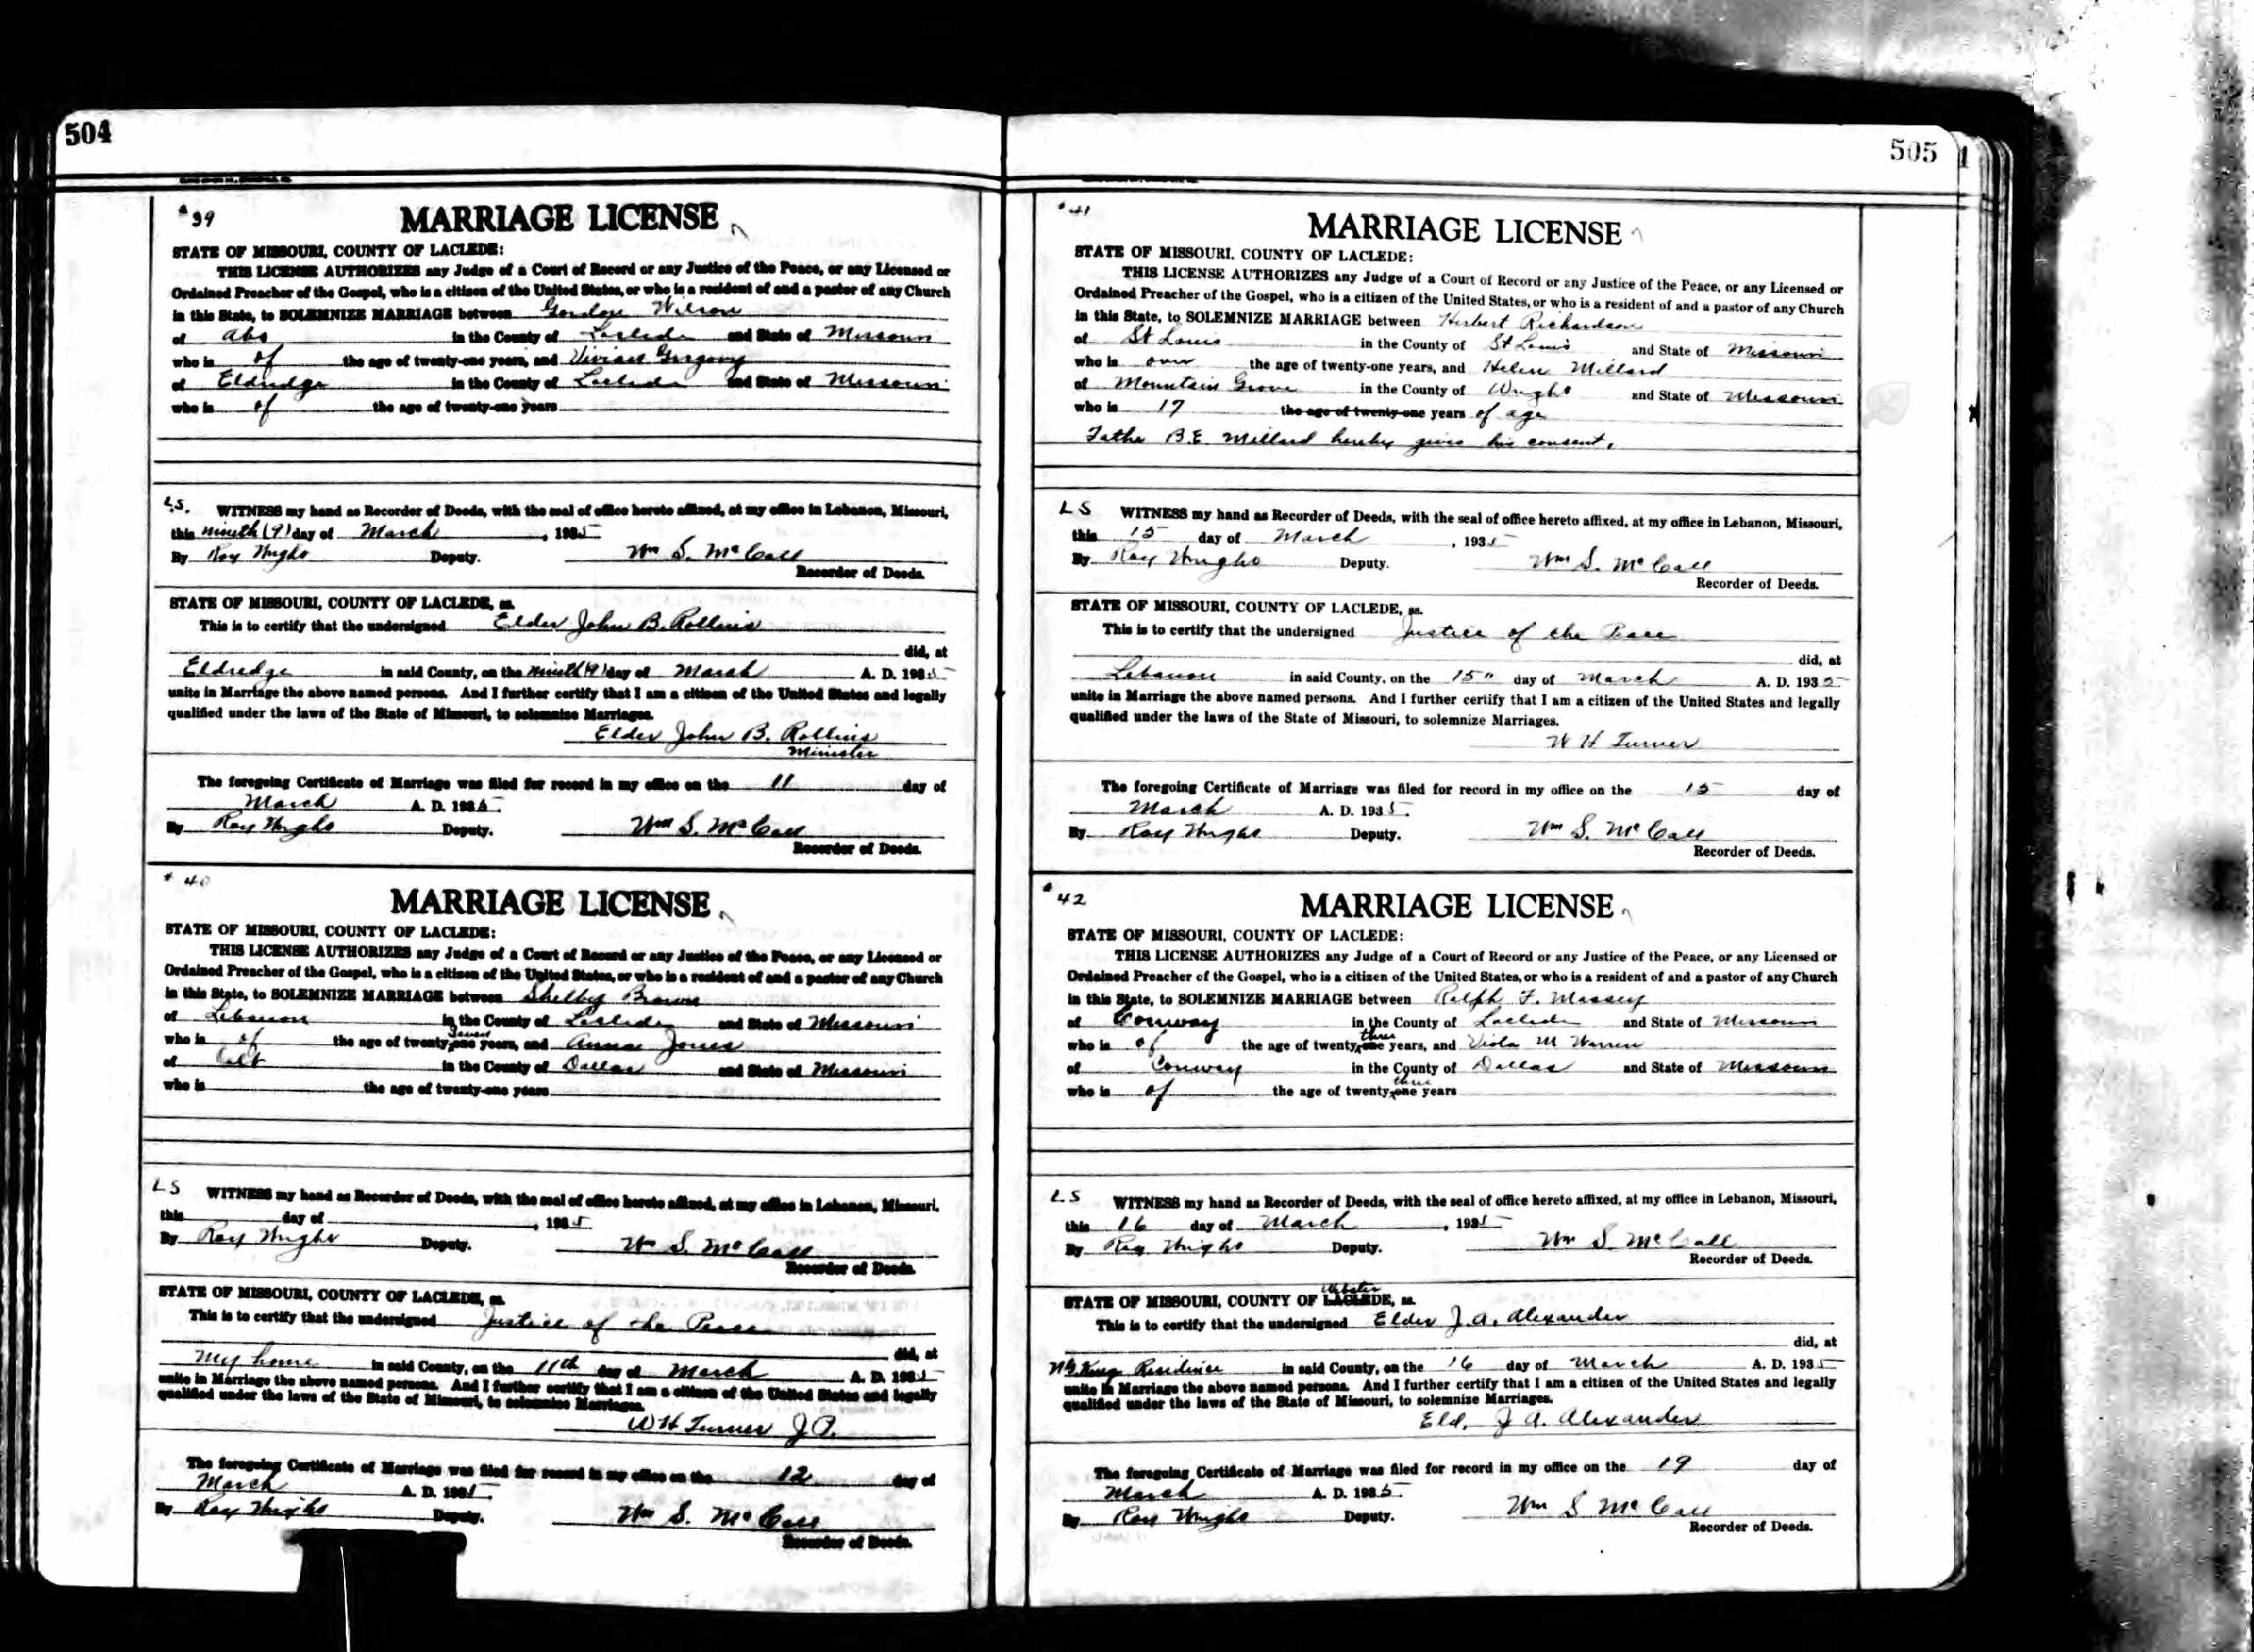 504
#39
MARRIAGE LICENSE
STATE OF MISSOURI, COUNTY OF LACLEDE:
THIS LICENSE AUTHORIZES any Judge of a Court of Record or any Justice of the Peace, or any Licensed or
Ordained Preacher of the Gospel, who is a citizen of the United States, or who is a resident of and a pastor of any Church
in this State, to SOLEMNIZE MARRIAGE between Wilson
of Abo in the County of Laclede and State of Missouri
who is of the age of twenty-one years, and Vivian Gregory
of Eldridge in the County of Laclede and State of Missouri
who is of the age of twenty-one years
L.S. WITNESS my hand as Recorder of Deeds, with the seal of office hereto affixed, at my office in Lebanon, Missouri,
this ninth (9) day of March, 1935
By Roy Wright Deputy. Wm S. McCall
Recorder of Deeds.
STATE OF MISSOURI, COUNTY OF LACLEDE, ss.
This is to certify that the undersigned Elder John B. Rollins
did, at
Eldredge in said County, on the ninth (9) day of March A. D. 1935
unite in Marriage the above named persons. And I further certify that I am a citizen of the United States and legally
qualified under the laws of the State of Missouri, to solemnize Marriages.
Elder John B. Rollins
Minister
The foregoing Certificate of Marriage was filed for record in my office on the 11 day of
March A. D. 1935
By Roy Wright Deputy. Wm S. McCall
Recorder of Deeds.
# 40
MARRIAGE LICENSE
STATE OF MISSOURI, COUNTY OF LACLEDE:
THIS LICENSE AUTHORIZES any Judge of a Court of Record or any Justice of the Peace, or any Licensed or
Ordained Preacher of the Gospel, who is a citizen of the United States, or who is a resident of and a pastor of any Church
in this State, to SOLEMNIZE MARRIAGE between Shelby Brown
of Lebanon in the County of Laclede and State of Missouri
who is of the age of twenty seven one years, and Anna Jones
of Celt in the County of Dallas and State of Missouri
who is the age of twenty-one years
L S WITNESS my hand as Recorder of Deeds, with the seal of office hereto affixed, at my office in Lebanon, Missouri,
this day of , 1935
By Roy Wright Deputy. Wm S. McCall
Recorder of Deeds.
STATE OF MISSOURI, COUNTY OF LACLEDE, ss.
This is to certify that the undersigned Justice of the Peace
did, at
My home in said County, on the 11th day of March A. D. 1935
unite in Marriage the above named persons. And I further certify that I am a citizen of the United States and legally
qualified under the laws of the State of Missouri, to solemnize Marriages.
W H Turner J.P.
The foregoing Certificate of Marriage was filed for record in my office on the 12 day of
March A. D. 1935
By Roy Wright Deputy. Wm S. McCall
Recorder of Deeds.
505
#41
MARRIAGE LICENSE
STATE OF MISSOURI, COUNTY OF LACLEDE:
THIS LICENSE AUTHORIZES any Judge of a Court of Record or any Justice of the Peace, or any Licensed or
Ordained Preacher of the Gospel, who is a citizen of the United States, or who is a resident of and a pastor of any Church
in this State, to SOLEMNIZE MARRIAGE between Herbert Richardson
of St Louis in the County of St Louis and State of Missouri
who is over the age of twenty-one years, and Helen Millard
of Mountain Grove in the County of Wright and State of Missouri
who is 17 the age of twenty-one years of age
Father B.E. Millard hereby gives his consent.
L S WITNESS my hand as Recorder of Deeds, with the seal of office hereto affixed, at my office in Lebanon, Missouri,
this 15 day of March, 1935
By Roy Wright Deputy. Wm S. McCall
Recorder of Deeds.
STATE OF MISSOURI, COUNTY OF LACLEDE, ss.
This is to certify that the undersigned Justice of the Peace
did, at
Lebanon in said County, on the 15" day of March A. D. 1935
unite in Marriage the above named persons. And I further certify that I am a citizen of the United States and legally
qualified under the laws of the State of Missouri, to solemnize Marriages.
W H Turner
The foregoing Certificate of Marriage was filed for record in my office on the 15 day of
March A. D. 1935.
By Roy Wright Deputy. Wm S. McCall
Recorder of Deeds.
#42
MARRIAGE LICENSE
STATE OF MISSOURI, COUNTY OF LACLEDE:
THIS LICENSE AUTHORIZES any Judge of a Court of Record or any Justice of the Peace, or any Licensed or
Ordained Preacher of the Gospel, who is a citizen of the United States, or who is a resident of and a pastor of any Church
in this State, to SOLEMNIZE MARRIAGE between Ralph F. Massey
of Conway in the County of Laclede and State of Missouri
who is of the age of twenty three one years, and Viola M Warren
of Conway in the County of Dallas and State of Missouri
who is of the age of twenty three one years
L S WITNESS my hand as Recorder of Deeds, with the seal of office hereto affixed, at my office in Lebanon, Missouri,
this 16 day of March, 1935
By Roy Wright Deputy. Wm S. McCall
Recorder of Deeds.
STATE OF MISSOURI, COUNTY OF Webster LACLEDE, ss.
This is to certify that the undersigned Elder J. A. Alexander
did, at
King Residence in said County, on the 16 day of March A. D. 1935
unite in Marriage the above named persons. And I further certify that I am a citizen of the United States and legally
qualified under the laws of the State of Missouri, to solemnize Marriages.
Eld. J A. Alexander
The foregoing Certificate of Marriage was filed for record in my office on the 19 day of
March A. D. 1935
By Roy Wright Deputy. Wm S McCall
Recorder of Deeds.